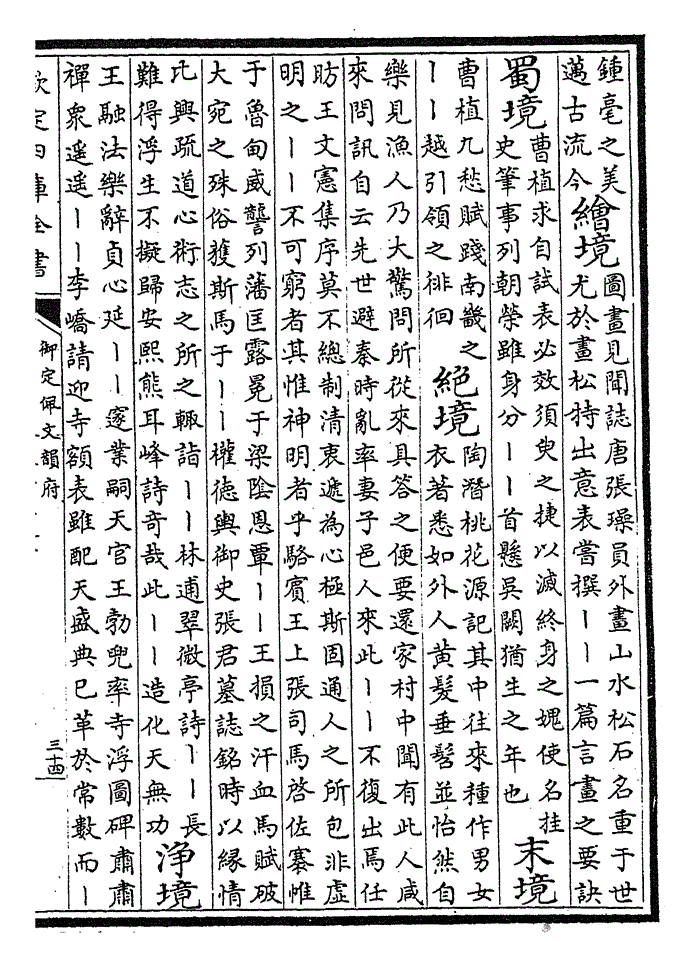 鍾毫之美
邁古流今
繪境
圖畫見聞誌唐張璪員外畫山水松石名重于世
尤於畫松特出意表嘗撰丨丨一篇言畫之要訣
蜀境
曹植求自試表必效須臾之捷以滅終身之愧使名挂
史筆事列朝榮雖身分丨丨首懸吳闕猶生之年也
末境
曹植九愁賦踐南畿之
丨丨越引領之徘徊
絕境
陶潛桃花源記其中往來種作男女
衣著悉如外人黄髮垂髫並怡然自
樂見漁人乃大驚問所從來具答之便要還家村中聞有此人咸
來問訊自云先世避秦時亂率妻子邑人來此丨丨不復出焉任
昉王文憲集序莫不總制清衷遞為心極斯固通人之所包非虚
明之丨丨不可窮者其惟神明者乎駱賓王上張司馬啓佐褰帷
于魯甸威讋列藩匡露冕于梁陰恩覃丨丨王損之汗血馬賦破
大宛之殊俗獲斯馬于丨丨權德輿御史張君墓誌銘時以緣情
比興疏道心術志之所之輒詣丨丨林逋翠微亭詩丨丨長
難得浮生不擬歸安熙熊耳峰詩奇哉此丨丨造化天無功
淨境
王融法樂辭貞心延丨丨邃業嗣天官王勃兜率寺浮圖碑肅肅
禪衆遥遥丨丨李嶠請迎寺額表雖配天盛典已革於常數而丨
欽定四庫全書
御定佩文韻府
三十四